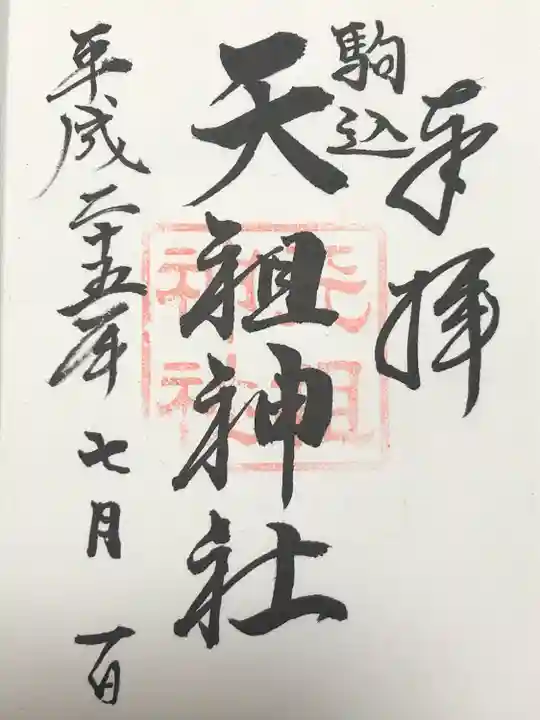 奉拝
駒込
天祖神社
平成二十五年七月一日
天祖
神社